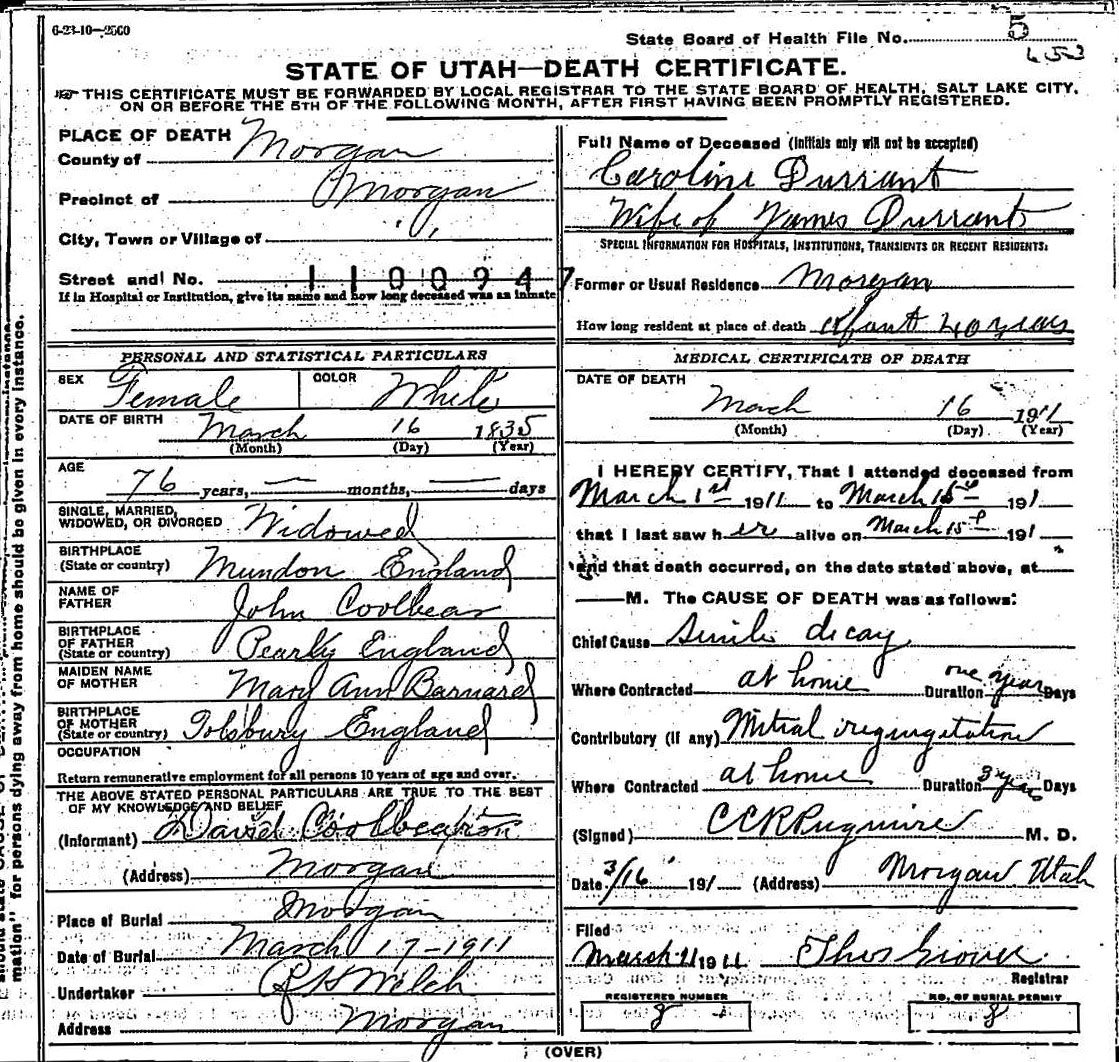 6-23-10—2500
State Board of Health File No. 5
653
STATE OF UTAH—DEATH CERTIFICATE.
THIS CERTIFICATE MUST BE FORWARDED BY LOCAL REGISTRAR TO THE STATE BOARD OF HEALTH, SALT LAKE CITY,
ON OR BEFORE THE 5TH OF THE FOLLOWING MONTH, AFTER FIRST HAVING BEEN PROMPTLY REGISTERED.
PLACE OF DEATH
County of Morgan
Precinct of Morgan
City, Town or Village of " "
Street and No.
110094 7
If in Hospital or Institution, give its name and how long deceased was an inmate
PERSONAL AND STATISTICAL PARTICULARS
SEX Female COLOR White
DATE OF BIRTH March 16 1835
(Month) (Day) (Year)
AGE
76 years, — months, — days
SINGLE, MARRIED,
WIDOWED, OR DIVORCED Widowed
BIRTHPLACE
(State or country) Mundon England
NAME OF
FATHER John Coolbear
BIRTHPLACE
OF FATHER
(State or country) Pearly England
MAIDEN NAME
OF MOTHER Mary Ann Barnard
BIRTHPLACE
OF MOTHER
(State or country) Tolsbury England
OCCUPATION
Return remunerative employment for all persons 10 years of age and over.
THE ABOVE STATED PERSONAL PARTICULARS ARE TRUE TO THE BEST
OF MY KNOWLEDGE AND BELIEF
(Informant) David
(Address) Morgan
Place of Burial Morgan
Date of Burial March 17-1911
Undertaker Welch
Address Morgan
Full Name of Deceased (Initials only will not be accepted)
Caroline Durrant
Wife of James Durrant
SPECIAL INFORMATION FOR HOSPITALS, INSTITUTIONS, TRANSIENTS OR RECENT RESIDENTS:
Former or Usual Residence Morgan
How long resident at place of death about 40 years
MEDICAL CERTIFICATE OF DEATH
DATE OF DEATH
March 16 1911
(Month) (Day) (Year)
I HEREBY CERTIFY, That I attended deceased from
March 1st 1911 to March 15th 191
that I last saw her alive on March 15th 191
and that death occurred, on the date stated above, at
M. The CAUSE OF DEATH was as follows:
Chief Cause Senile decay
Where Contracted at home Duration one year Days
Contributory (if any) Mitral regurgitation
Where Contracted at home Duration 3 years Days
(Signed) M. D.
Date 3/16 191 (Address) Morgan Utah
Filed
March 1911 Thos Grover
Registrar
REGISTERED NUMBER
8
NO. OF BURIAL PERMIT
8
(OVER)
mation" for persons dying away from home should be given in every instance.